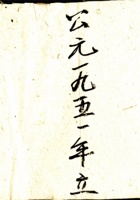 公元一九五一年立